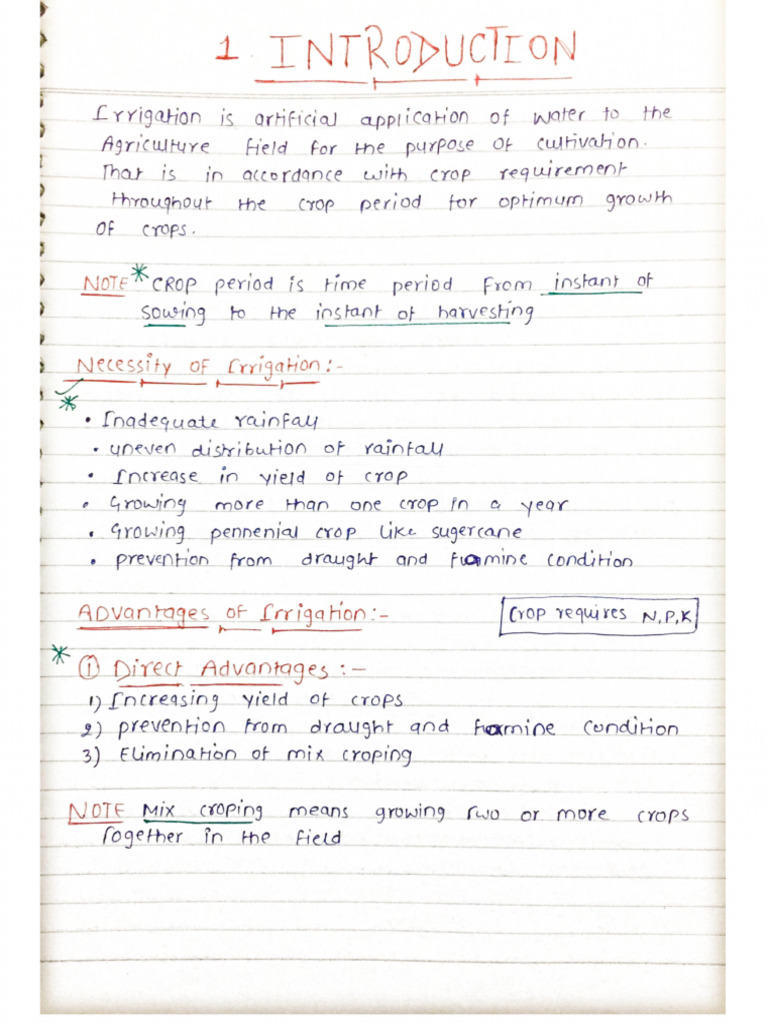 1. INTRODUCTION
Irrigation is artificial application of water to the
Agriculture field for the purpose of cultivation.
That is in accordance with crop requirement
throughout the crop period for optimum growth
of crops.
NOTE * CROP period is time period from instant of
sowing to the instant of harvesting
Necessity of Irrigation:-
*
• Inadequate rainfall
• uneven distribution of rainfall
• Increase in yield of crop
• Growing more than one crop in a year
• Growing pennenial crop like sugercane
• prevention from draught and famine condition
Advantages of Irrigation:-
Crop requires N,P,K
* ① Direct Advantages:-
1) Increasing yield of crops
2) prevention from draught and famine condition
3) Elimination of mix croping
NOTE Mix croping means growing two or more crops
Together in the field